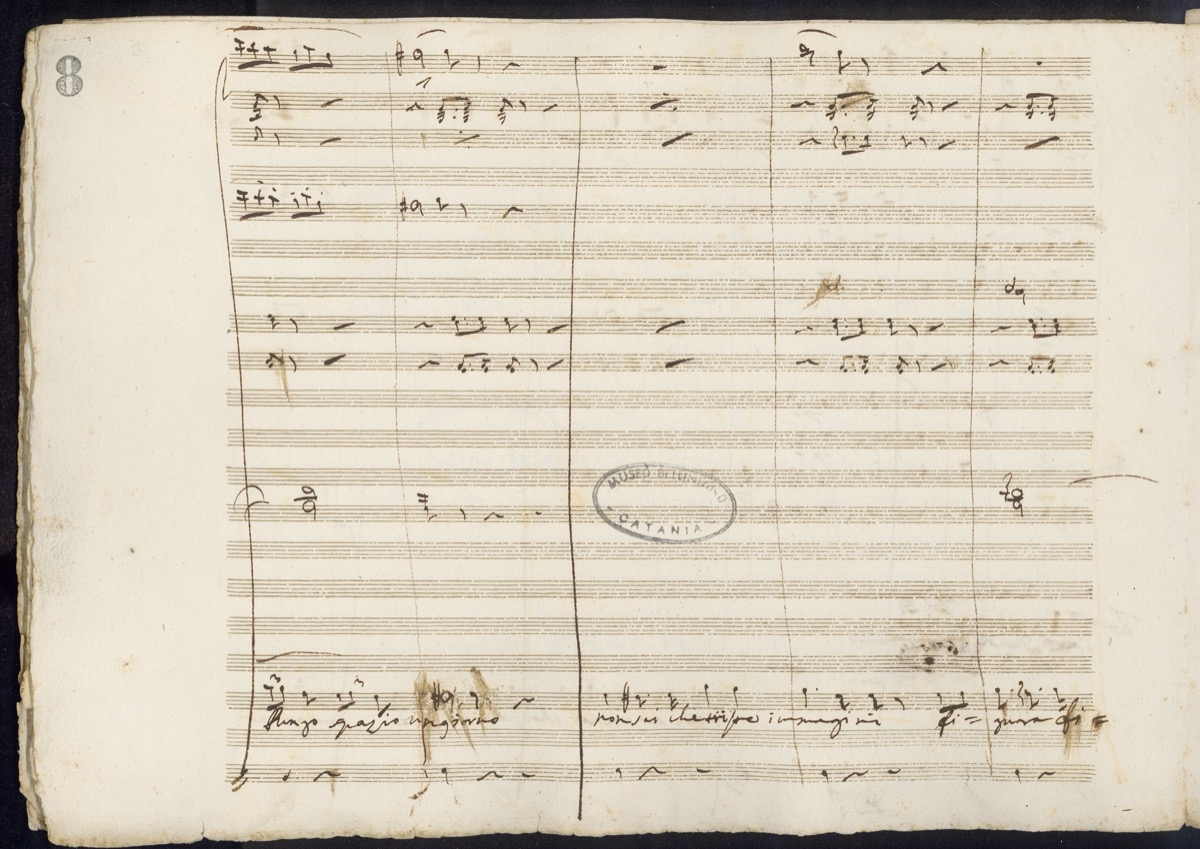 8
MUSEO BELLINIANO
CATANIA
Lungo spazio un giorno non sei che triste immagini fi= gurar fi=